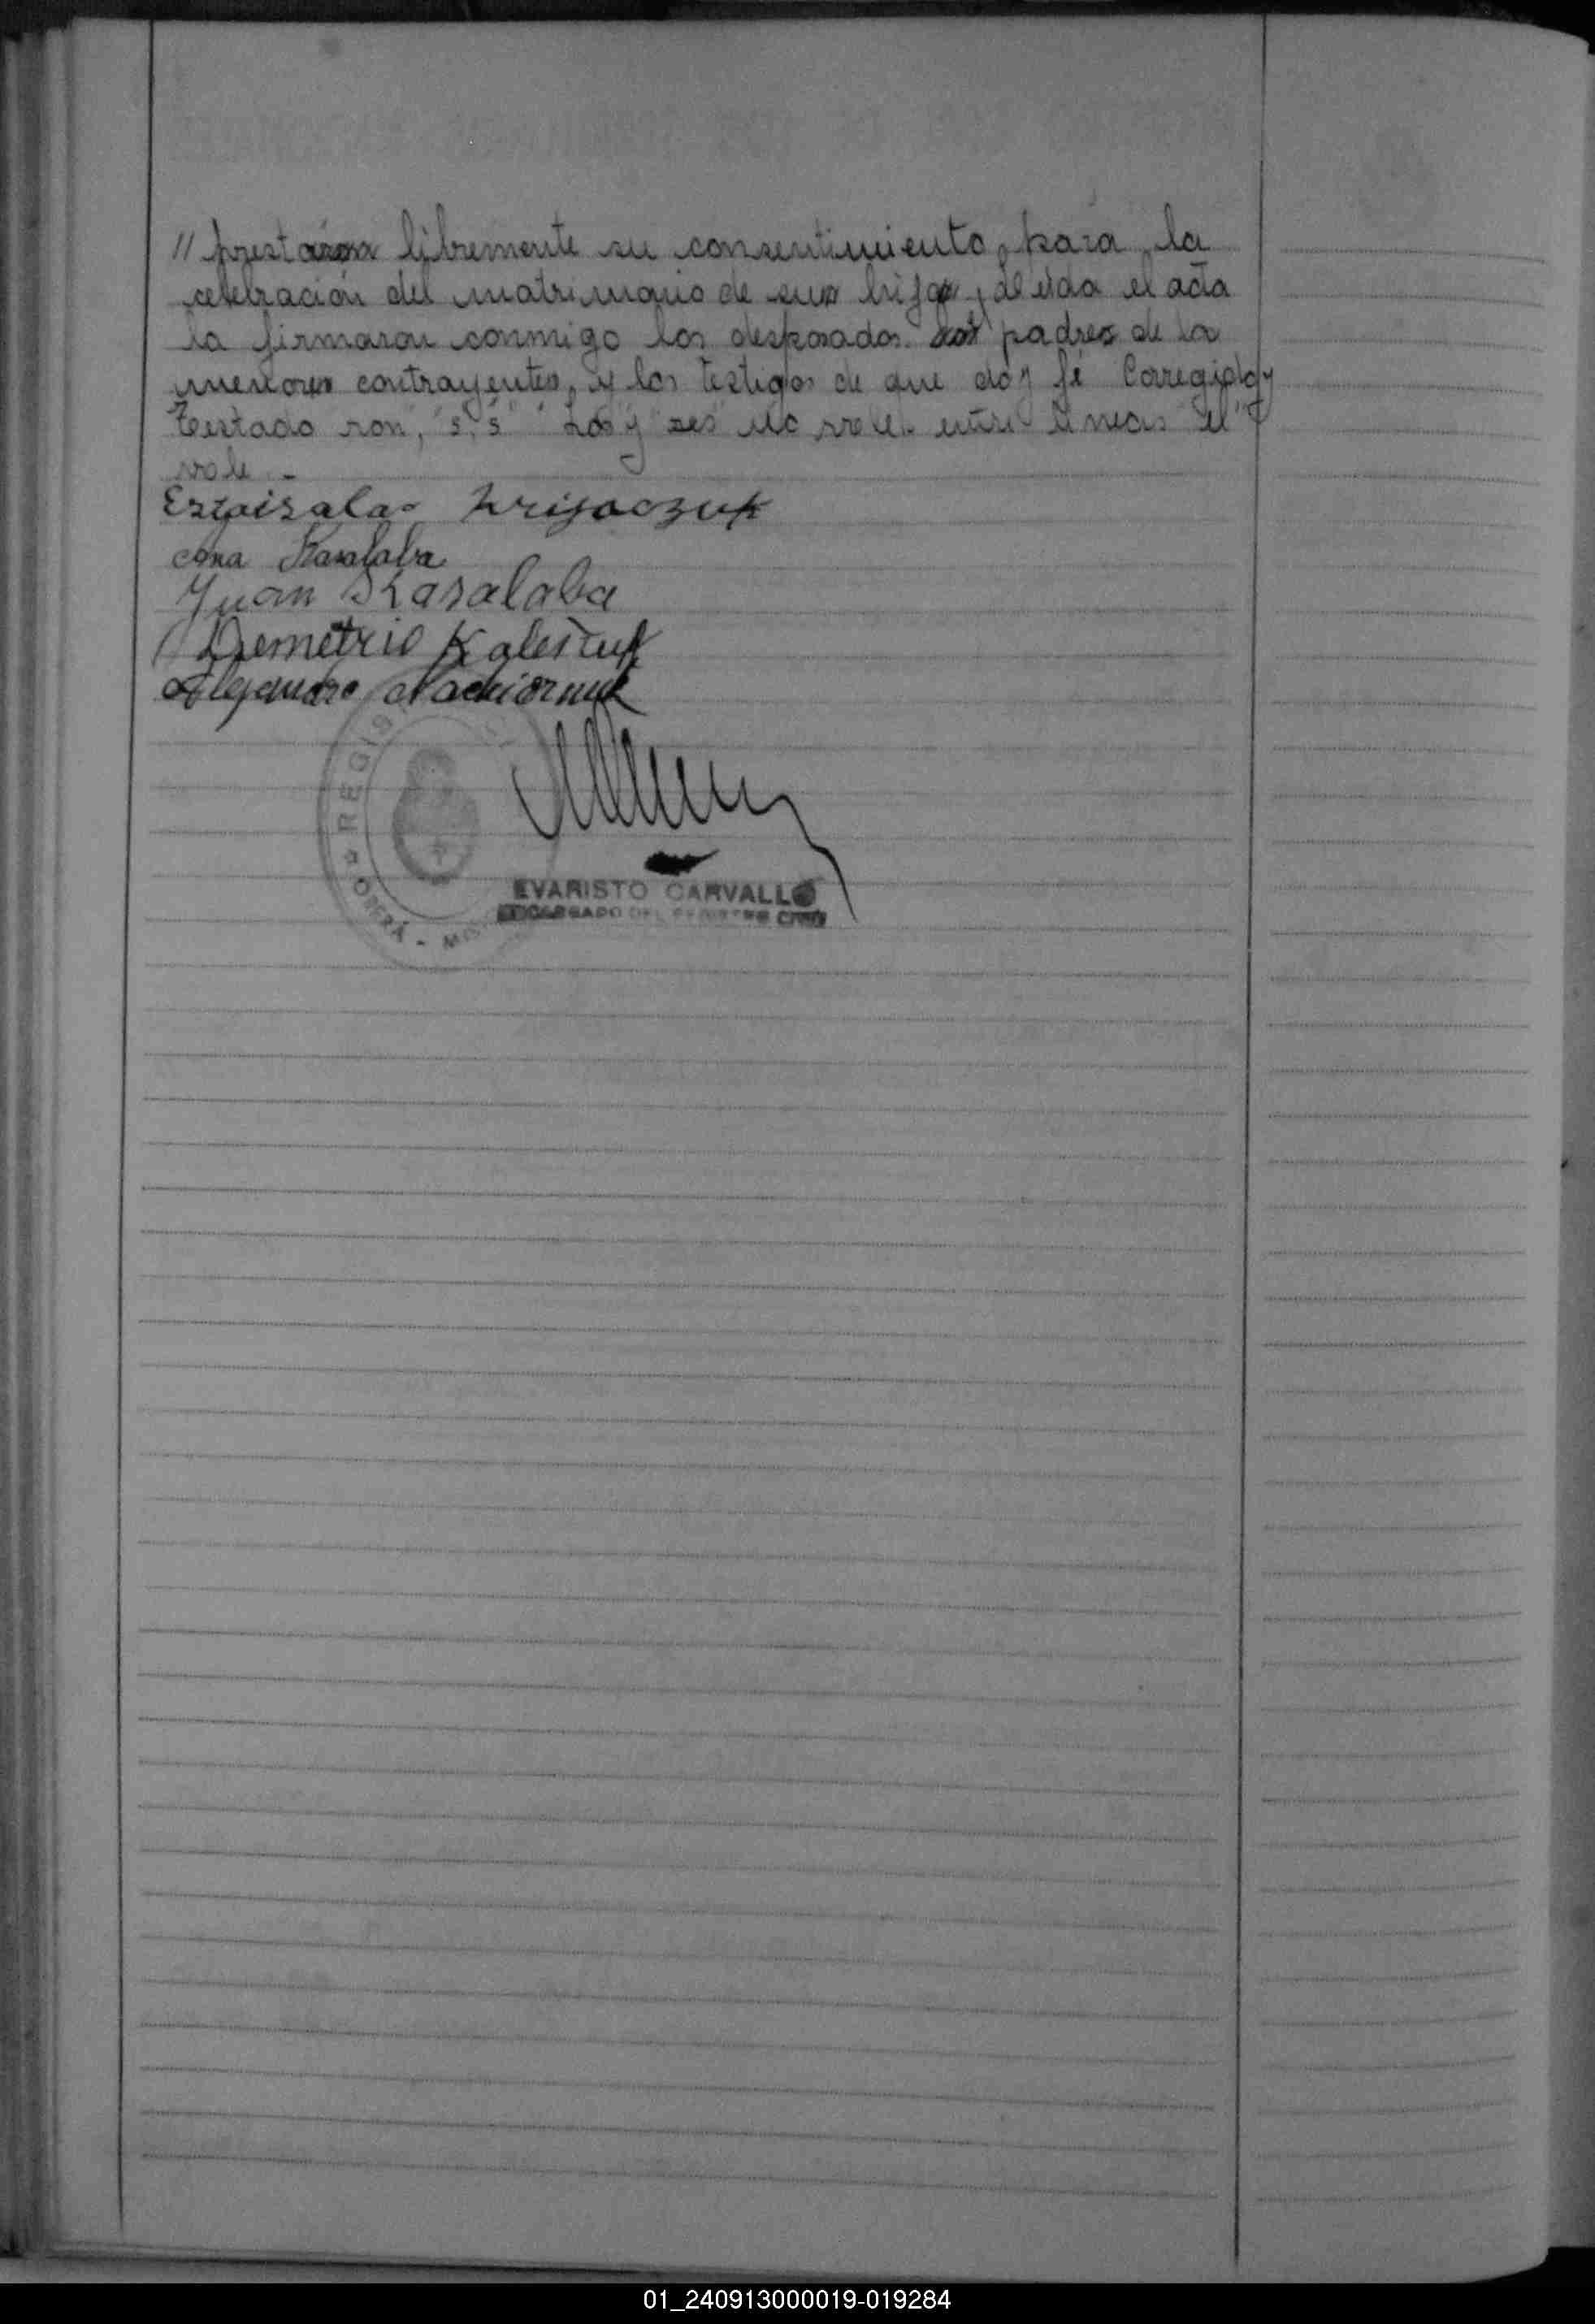 // prestaron libremente su consentimiento para la
celebración del matrimonio de sus hija, leída el acta
la firmaron conmigo los desposados los padres de la
menores contrayentes, y los testigos de que doy fé Corregido y
Testado ron, "s, s" "Los y res" no vale. entre lineas "el"
vale.-
Krisaczuk
Kasalaba
Juan Kasalaba
Demetrio Kalesczuk
Alejandro
REGIS
OBERÁ - MIS
EVARISTO CARVALLO
ENCARGADO DEL REGISTRO CIVIL
01_240913000019-019284